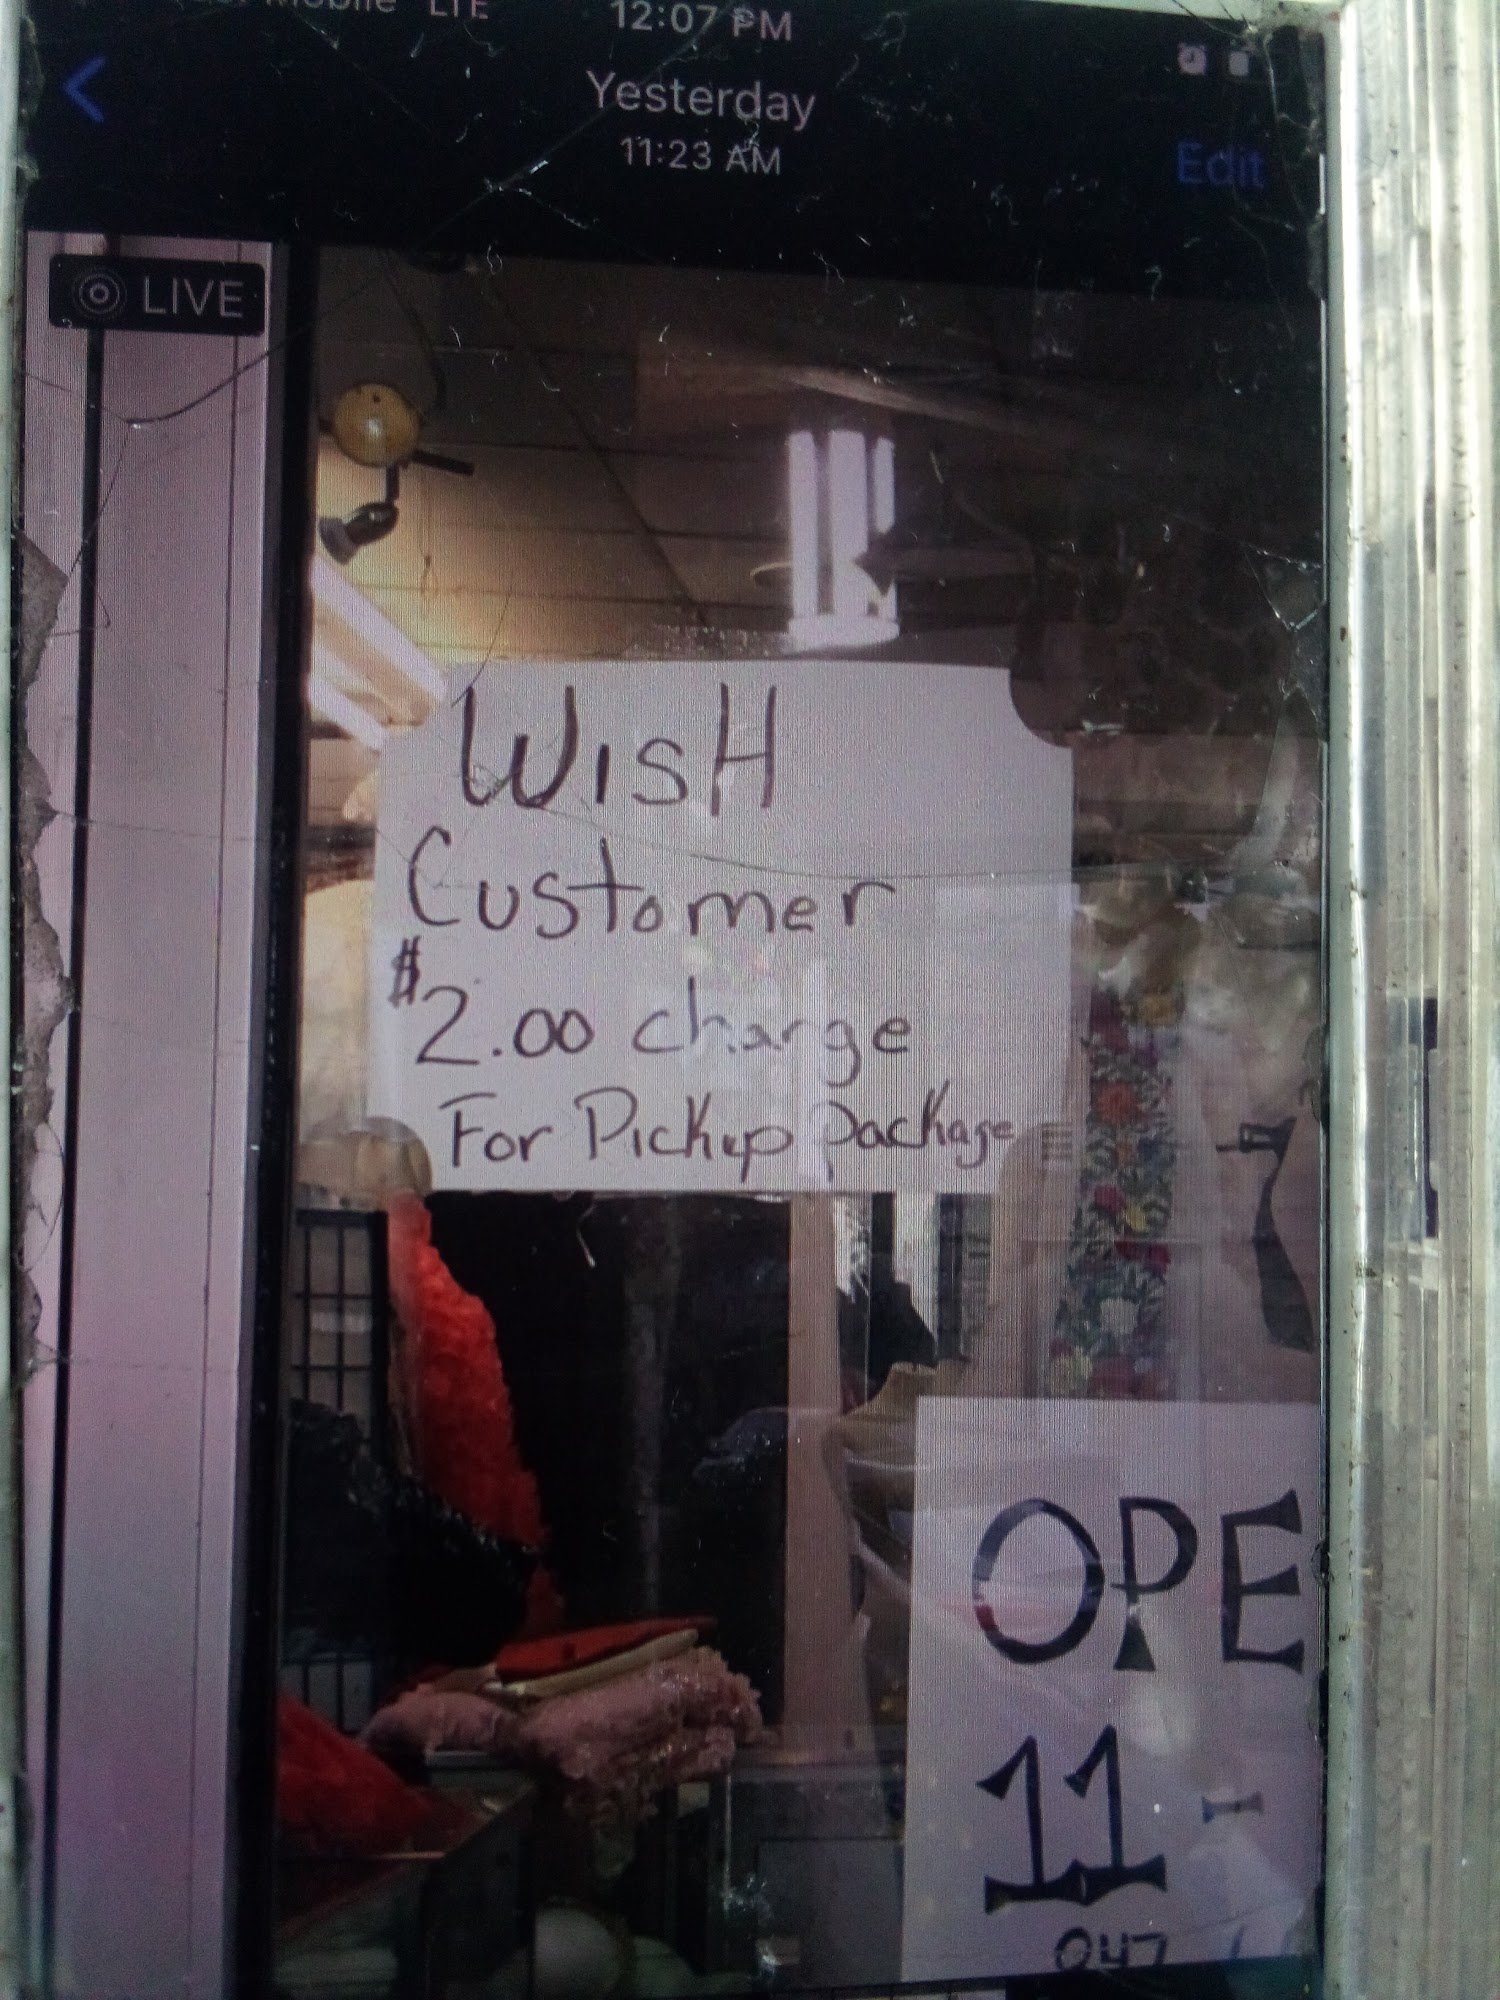 Mobile LTE
12:07 PM
Yesterday
11:23 AM
Edit
LIVE
WISH
Customer
$2.00 charge
For Pickup package
OPE
11 -